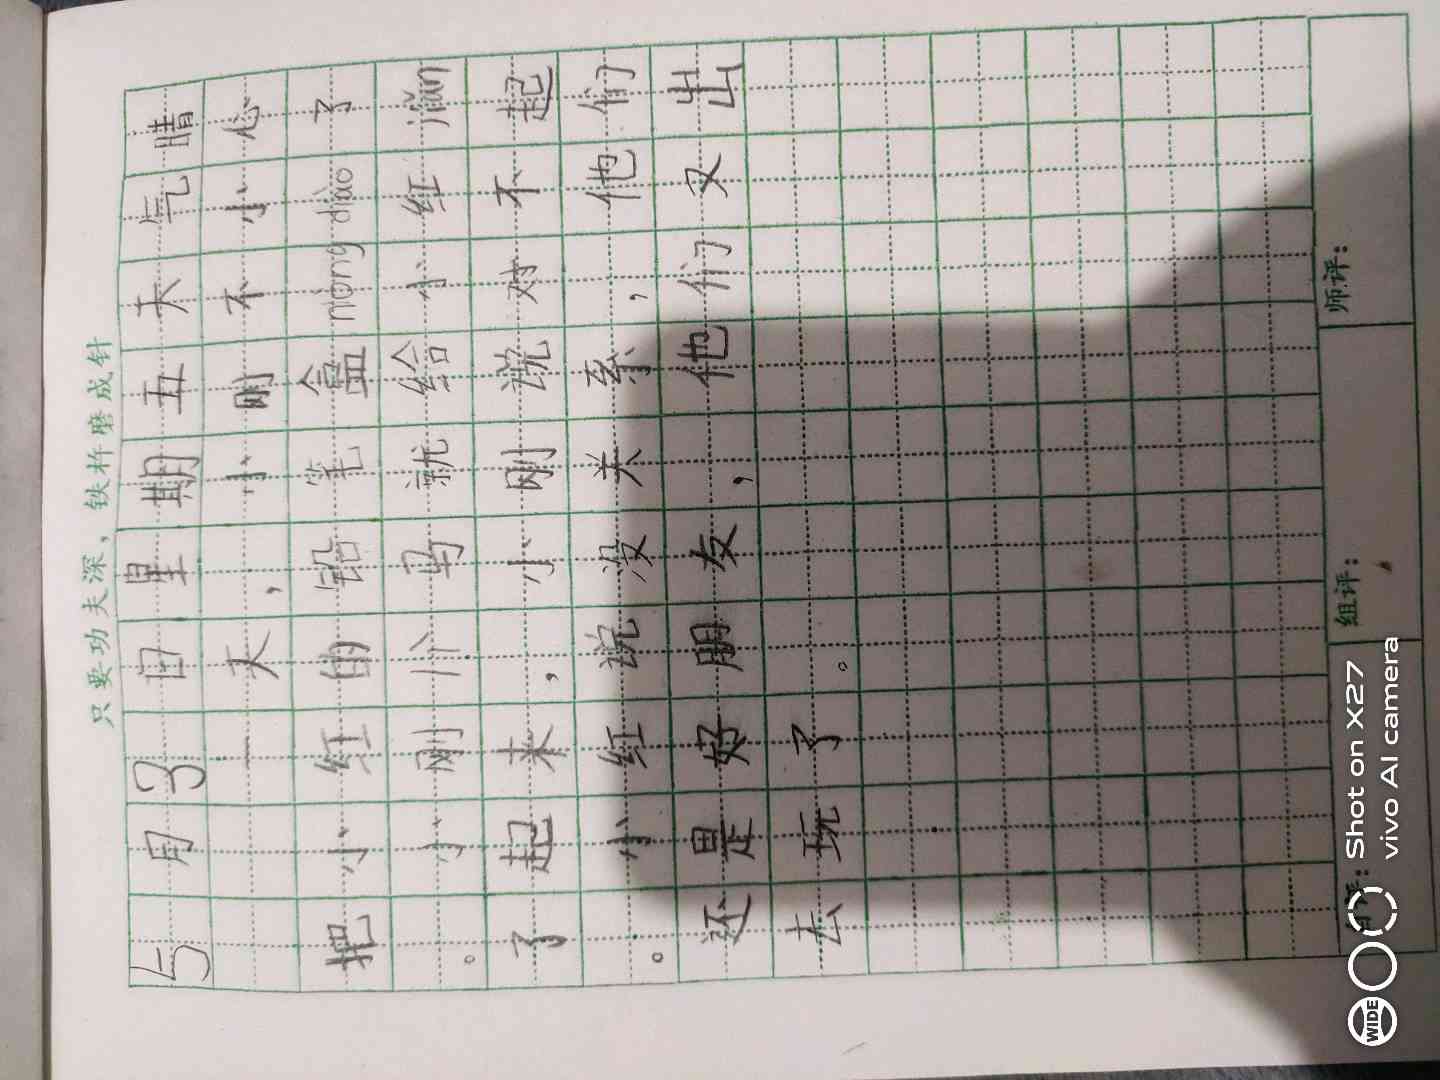 只要功夫深，铁杵磨成针
5月3日星期五天气晴
一天，小刚不小心
把小红的铅笔盒nòng diào了
。小刚马就给小红jiǎn
了起来，小刚说对不起
。小红说没关系，他们
还是好朋友，他们又出
去玩了。
自评： 组评： 师评：
WIDE
Shot on X27
vivo AI camera